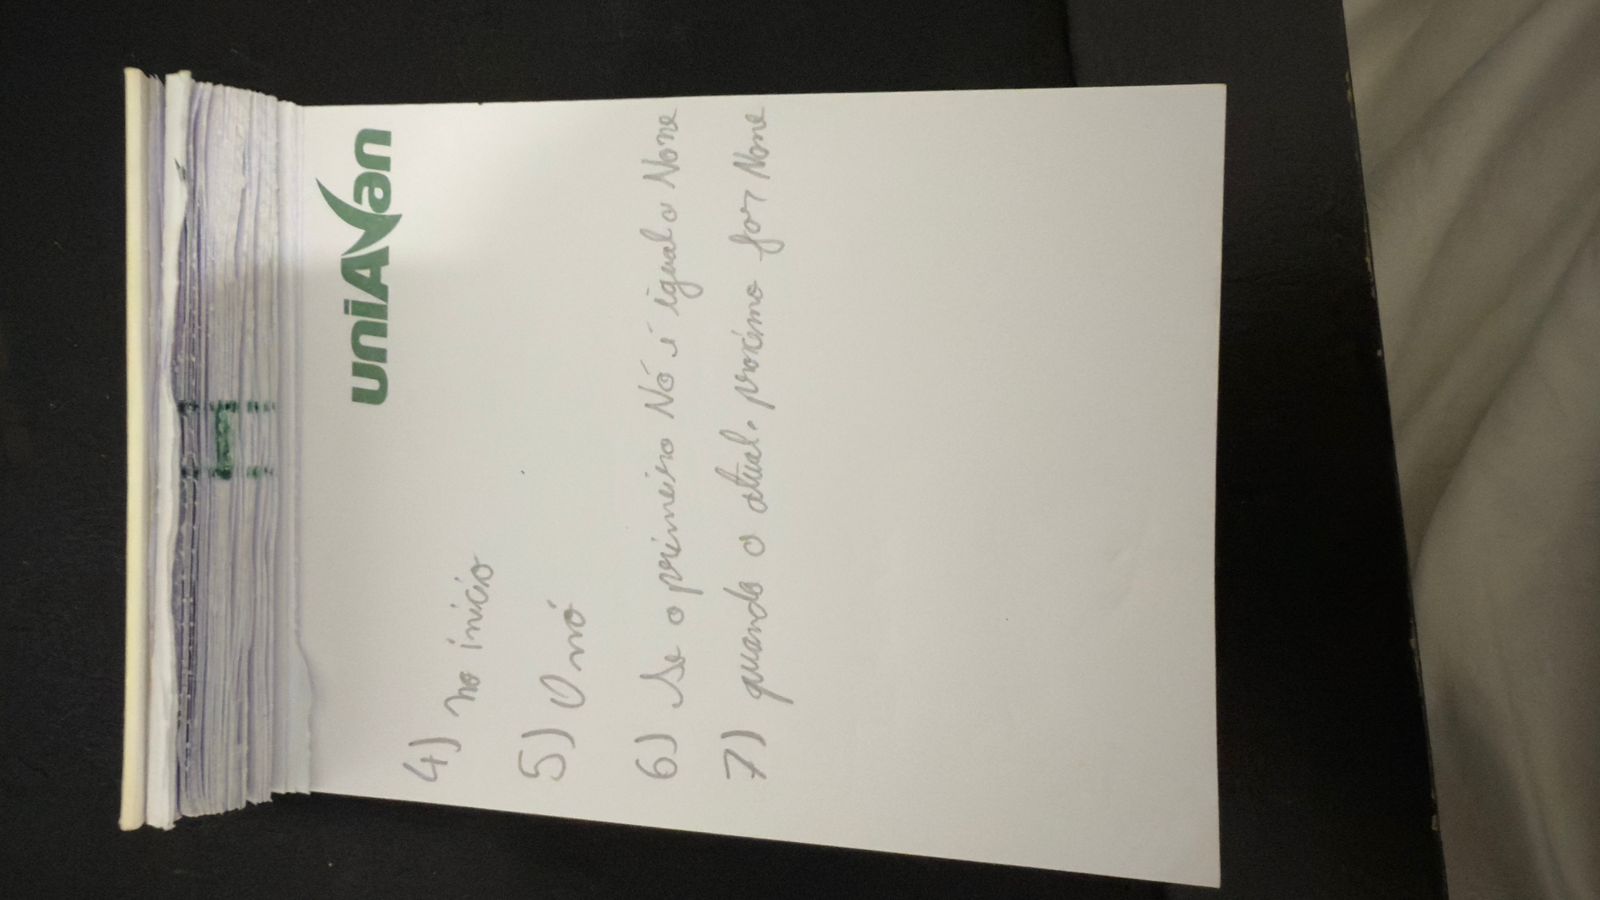 uniAVan
4) no início
5) O nó
6) Se o primeiro Nó é igual a None
7) quando o atual. próximo for None